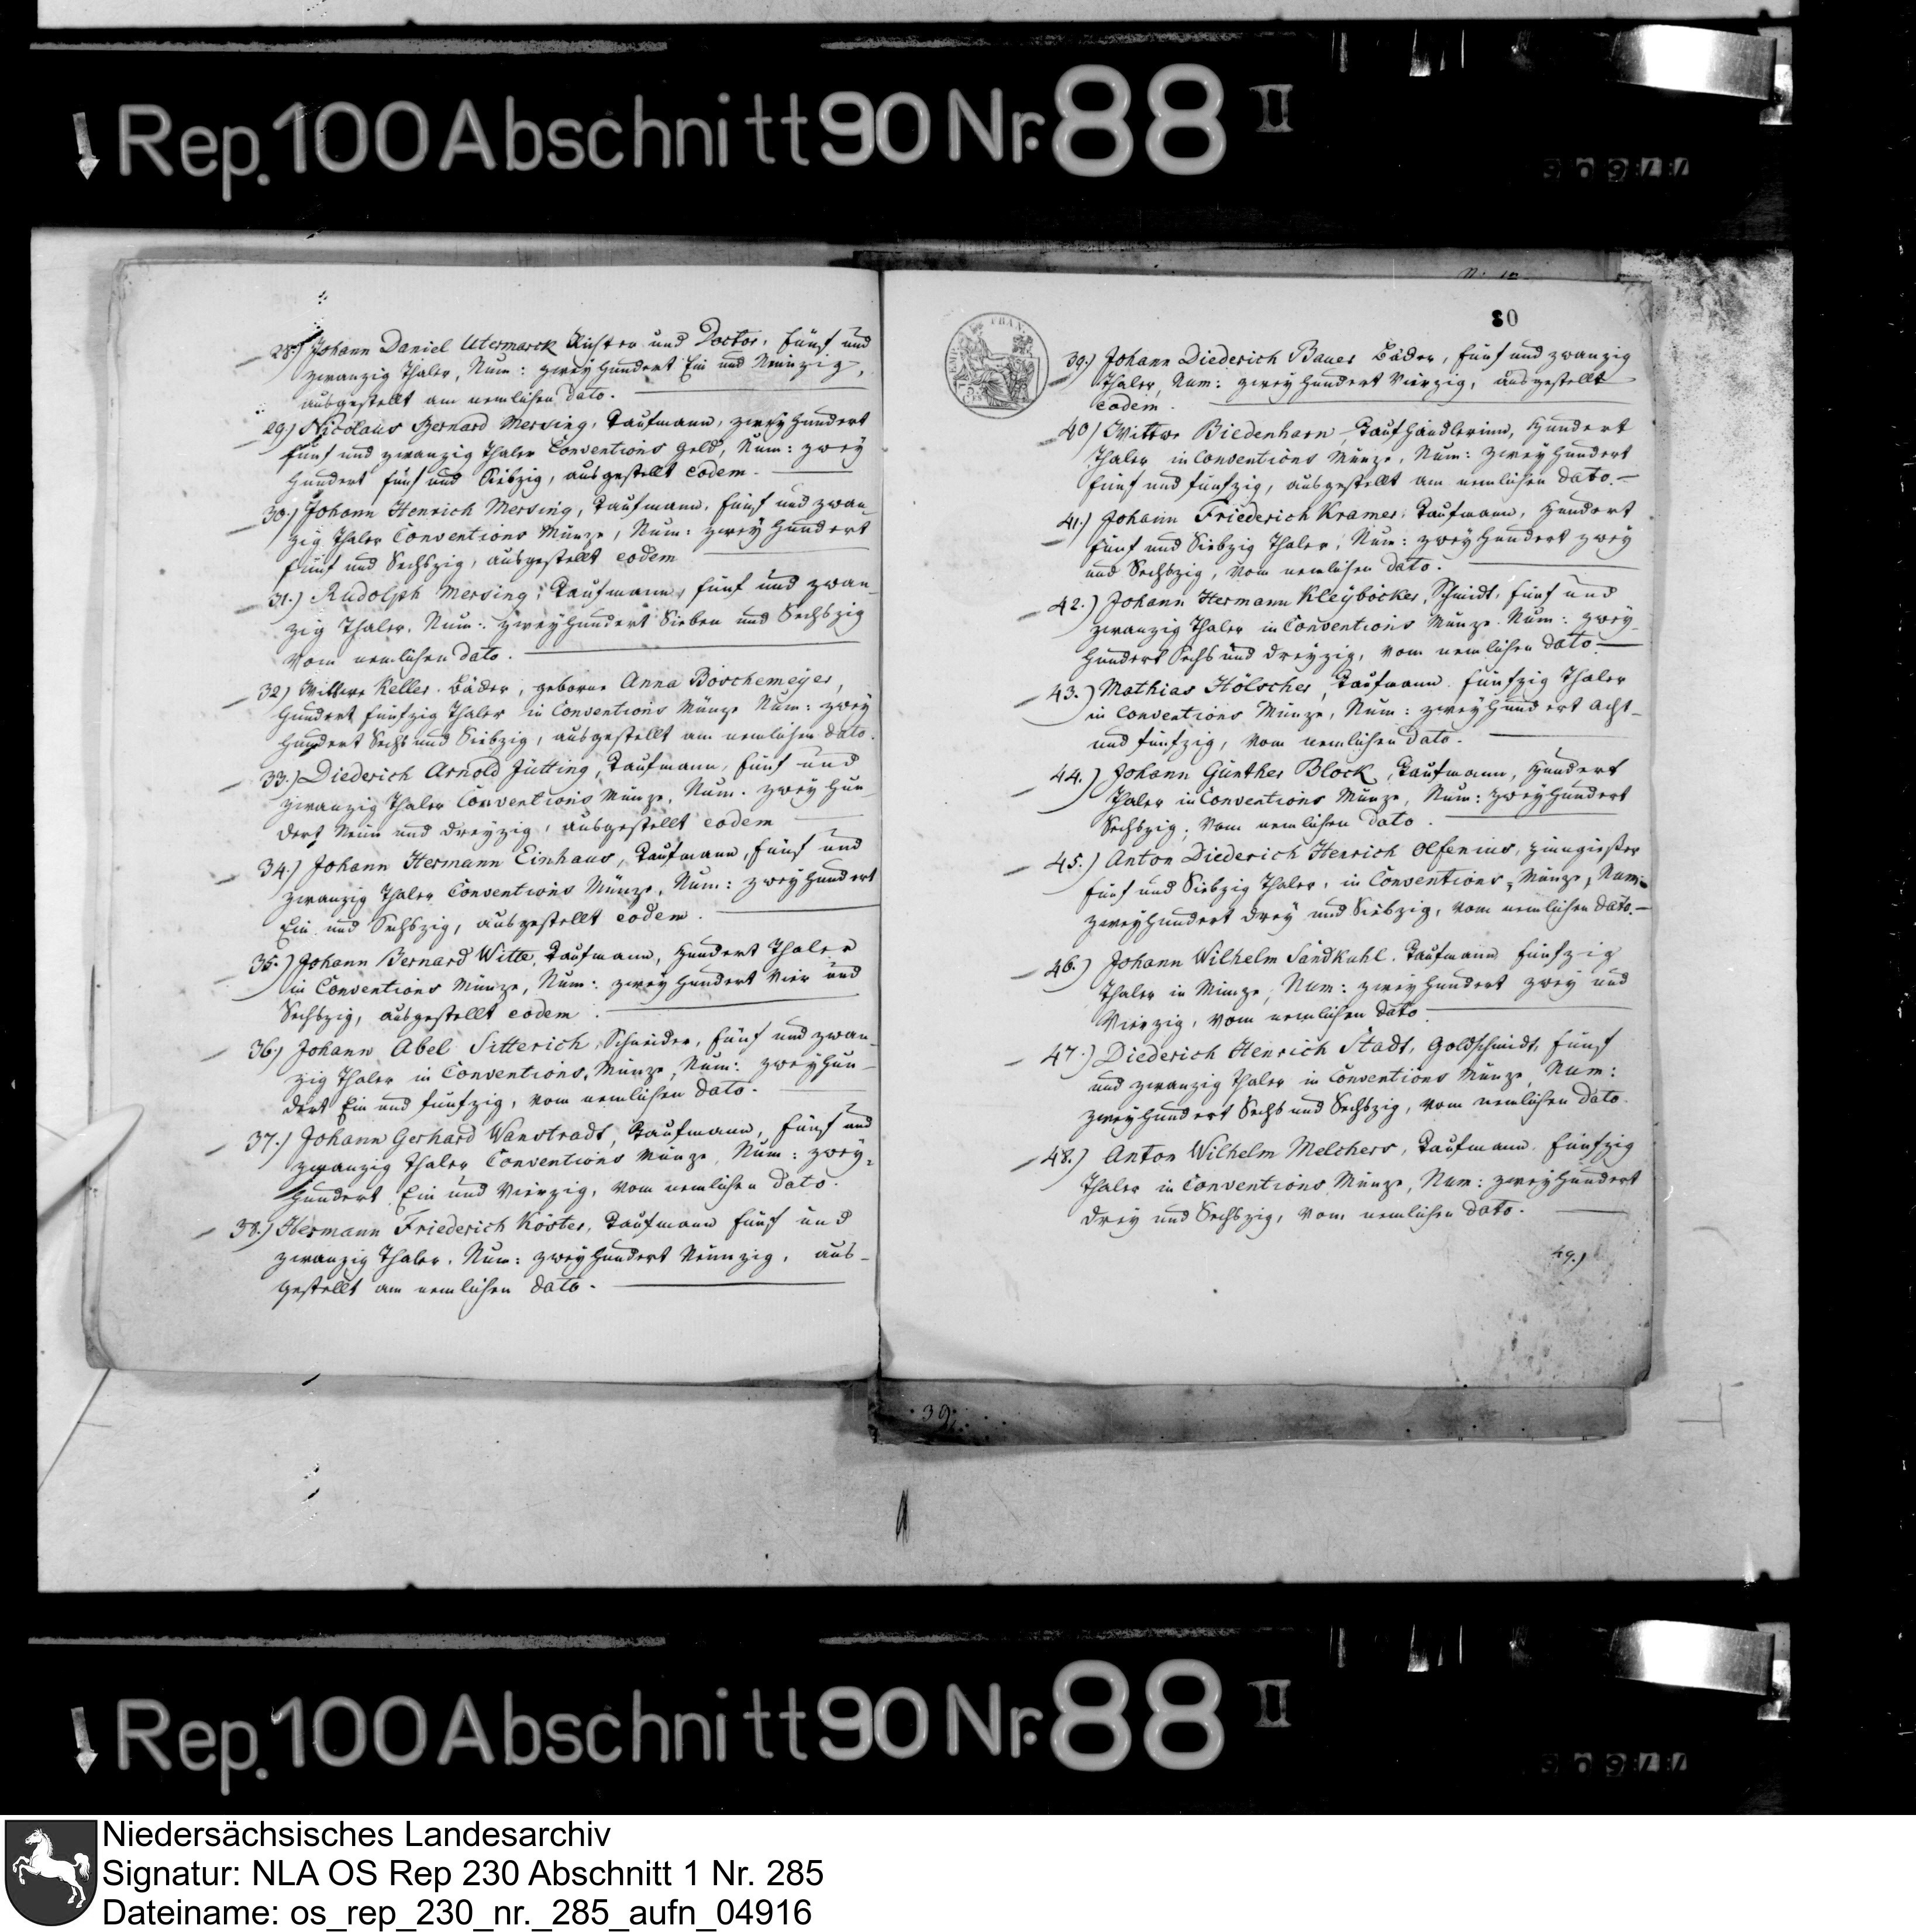 Rep. 100 Abschnitt 90 Nr. 88 II
28.) Johann Daniel Utermarck Richter und Doctor, fünf und
zwanzig Thaler, Num: zwey hundert Ein und Neunzig,
ausgestellt am nemlichen dato.
29.) Nicolaus Bernard Mersing, Kaufmann, zwey hundert
fünf und zwanzig Thaler Conventions Geld, Num: zwey
hundert fünf und Siebzig, ausgestellt eodem.
30.) Johann Henrich Mersing, Kaufmann, fünf und zwan-
zig Thaler Conventions Münze, Num: zwey hundert
fünf und Sechszig, ausgestellt eodem
31.) Rudolph Mersing, Kaufmann, fünf und zwan-
zig Thaler, Num: zweyhundert Sieben und Sechszig
vom nemlichen dato.
32.) Wittwe Keller, Bäcker, geborne Anna Boschemeyer,
hundert fünfzig Thaler in Conventions Münze Num: zwey
hundert Sechs und Siebzig, ausgestellt am nemlichen dato.
33.) Diederich Arnold Jütting, Kaufmann, fünf und
zwanzig Thaler Conventions Münze, Num. zwey hun-
dert Neun und dreyzig, ausgestellt eodem
34.) Johann Hermann Einhaus, Kaufmann, fünf und
zwanzig Thaler Conventions Münze, Num: zwey hundert
Ein und Sechszig, ausgestellt eodem.
35.) Johann Bernard Witte, Kaufmann, hundert Thaler
in Conventions Münze, Num: zwey hundert Vier und
Sechszig, ausgestellt eodem.
36.) Johann Abel Sitterich, Schneider, fünf und zwan-
zig Thaler in Conventions, Münze, Num: zwey hun-
dert Ein und fünfzig, vom nemlichen dato.
37.) Johann Gerhard Wanstradt, Kaufmann, fünf und
zwanzig Thaler Conventions Münze, Num: zwey-
hundert Ein und Vierzig, vom nemlichen dato.
38.) Hermann Friederich Köster, Kaufmann fünf und
zwanzig Thaler, Num: zwey hundert Neunzig, aus-
gestellt am nemlichen dato.
80
39.) Johann Diederich Bauer Bäcker, fünf und zwanzig
Thaler, Num: zwey hundert Vierzig, ausgestellt
eodem.
40.) Wittwe Biedenharn, Kaufhändlerinn, hundert
Thaler in Conventions Münze, Num: zwey hundert
fünf und fünfzig, ausgestellt am nemlichen dato.
41.) Johann Friederich Kramer, Kaufmann, hundert
fünf und Siebzig Thaler, Num: zwey hundert zwey
und Sechszig, vom nemlichen dato.
42.) Johann Hermann Kleyböcker, Schmidt, fünf und
zwanzig Thaler in Conventions Münze. Num: zwey-
hundert Sechs und dreyzig, vom nemlichen dato
43.) Mathias Hölscher, Kaufmann. fünfzig Thaler
in Conventions Münze, Num: zwey hundert acht-
und fünfzig, vom nemlichen dato.
44.) Johann Günther Block, Kaufmann, hundert
Thaler in Conventions Münze, Num: zwey hundert
Sechszig, vom nemlichen dato.
45.) Anton Diederich Henrich Olfenius, zinngießer
fünf und Siebzig Thaler, in Conventions, Münze, Num:
zweyhundert drey und Siebzig, vom nemlichen dato.
46.) Johann Wilhelm Sandkuhl. Kaufmann fünfzig
Thaler in Münze, Num: zwey hundert zwey und
Vierzig, vom nemlichen dato
47.) Diederich Henrich Stadt, Goldschmidt, fünf
und zwanzig Thaler in Conventions Münze, Num:
zwey hundert Sechs und Sechszig, vom nemlichen dato.
48.) Anton Wilhelm Melchers, Kaufmann. fünfzig
Thaler in Conventions Münze, Num: zwey hundert
drey und Sechszig, vom nemlichen dato.
49.)
39.
Rep. 100 Abschnitt 90 Nr. 88 II
Niedersächsisches Landesarchiv
Signatur: NLA OS Rep 230 Abschnitt 1 Nr. 285
Dateiname: os_rep_230_nr._285_aufn_04916